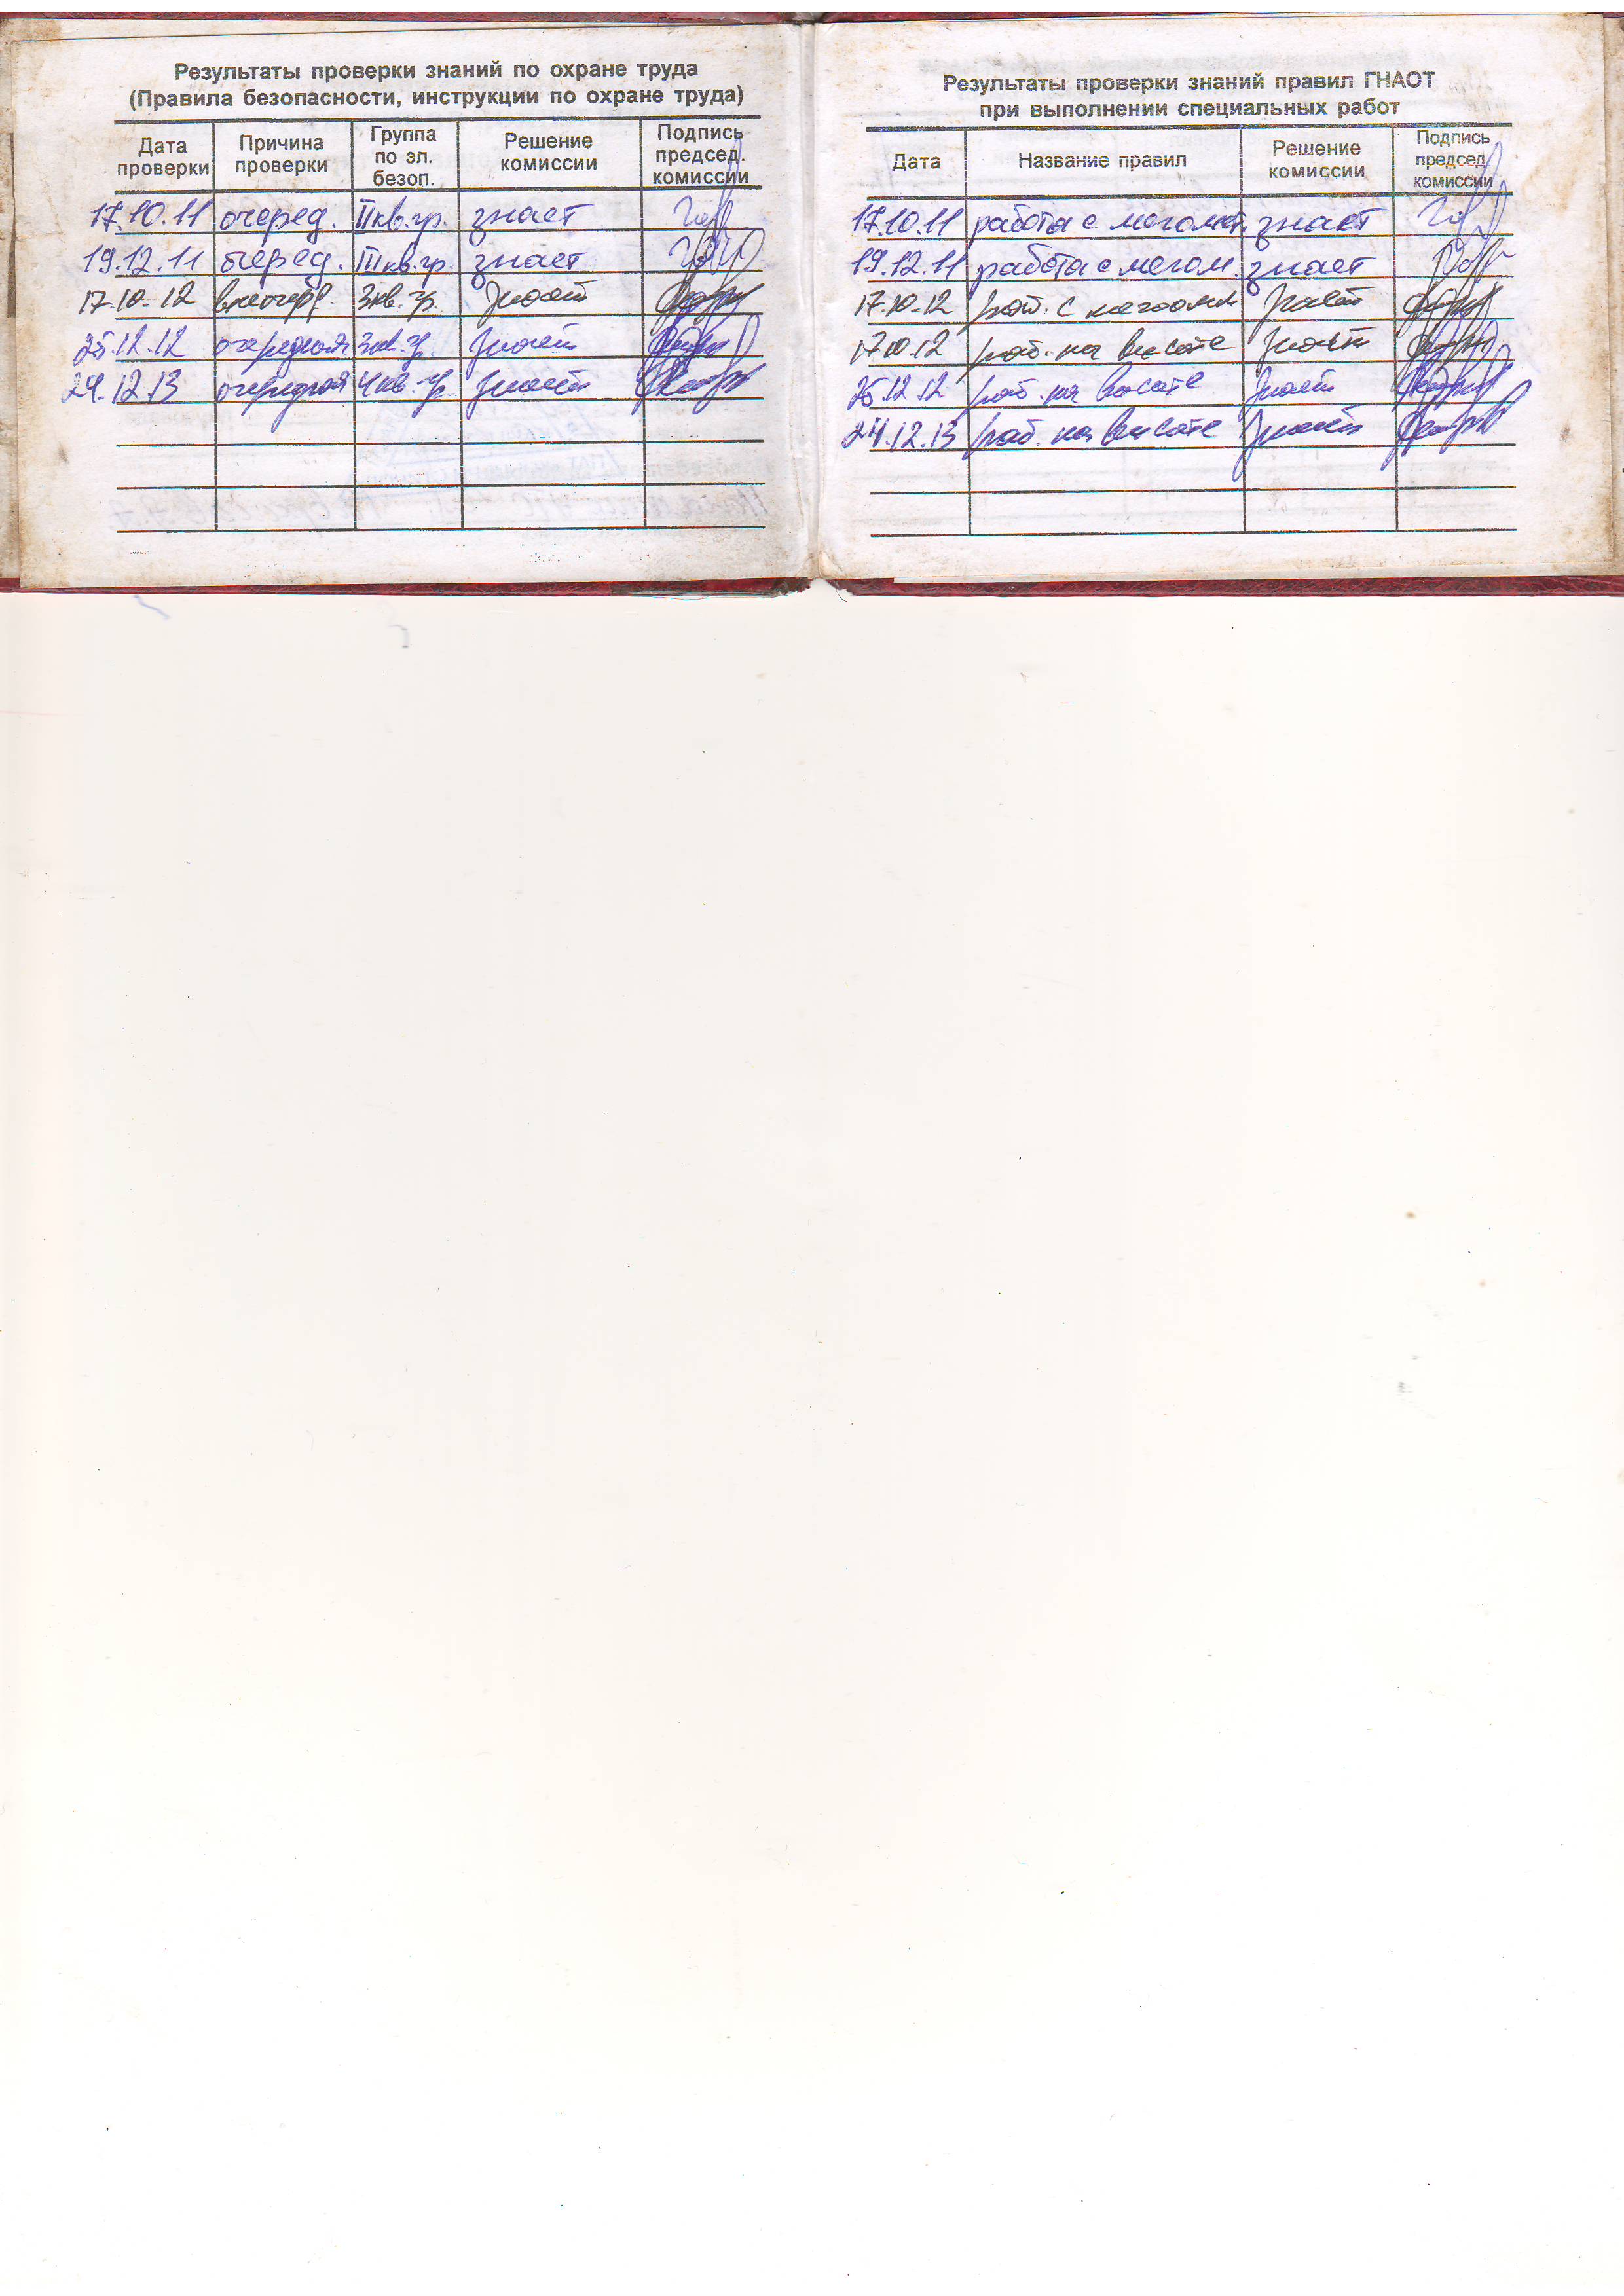 Результаты проверки знаний по охране труда
(Правила безопасности, инструкции по охране труда)
Дата проверки Причина проверки Группа по эл. безоп. Решение комиссии Подпись председ. комиссии
17.10.11 очеред. II кв. гр. знает
19.12.11 очеред. III кв. гр. знает
17.10.12 внеочеред. 3 кв. гр. знает
25.12.12 очередная 3 кв. гр. знает
24.12.13 очередная 4 кв. гр. знает
Результаты проверки знаний правил ГНАОТ
при выполнении специальных работ
Дата Название правил Решение комиссии Подпись председ. комиссии
17.10.11 работа с мегомет. знает
19.12.11 работа с мегом. знает
17.10.12 раб. с мегомм знает
17.10.12 раб. на высоте знает
25.12.12 раб. на высоте знает
24.12.13 раб. на высоте знает